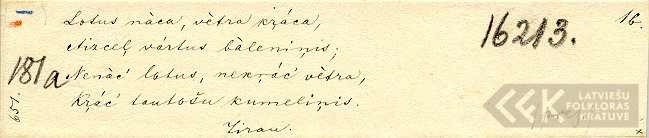 Lotus nāca, vētra kŗāca,
Aizceļ vārtus bāleniņis;
Nenāc lotus, nekŗāc vētra,
Kŗāc tautošu kumeliņis.
Zirau.
16213.
16.
181a
651.
LATVIEŠU
FOLKLORAS
KRĀTUVE